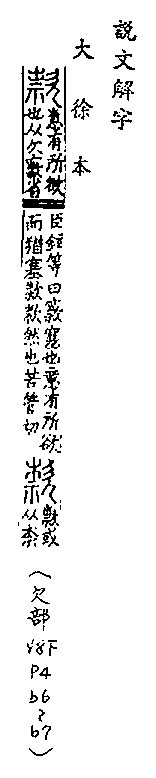 說文解字
大徐本
款
意有所欲
也从欠省
臣鉉等曰塞也意有所欲
而猶塞款款然也苦管切
款或
从柰
(欠部
V8F
P4
b6
~
b7)